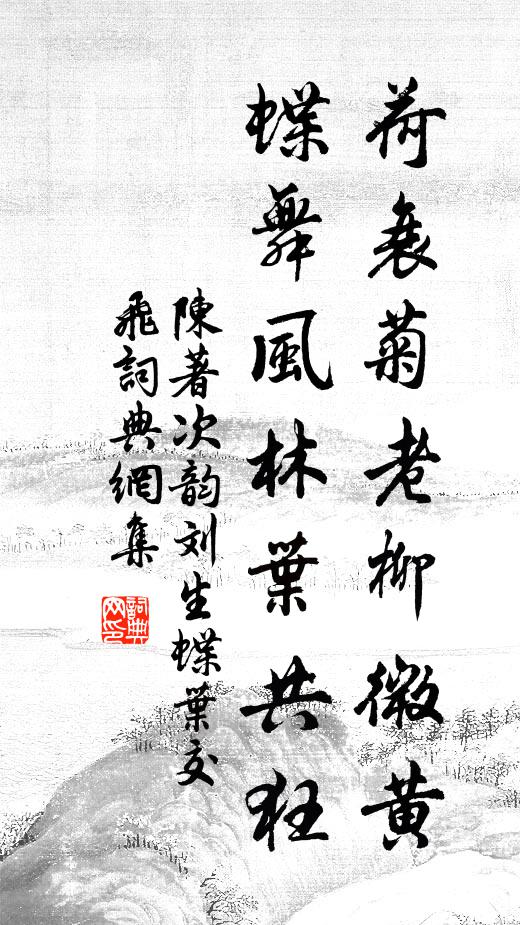 荷衰菊老柳微黄
蝶舞風林葉共狂
陳著次韵刘生蝶葉交
飛詞典網集
詞典
网印